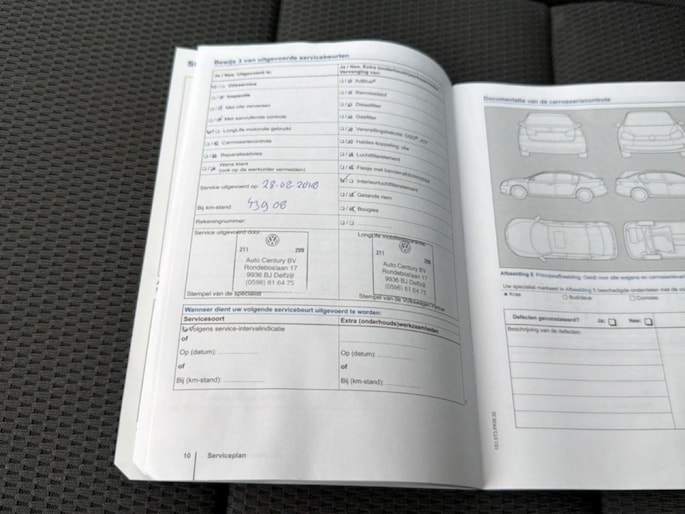 Bewijs 3 van uitgevoerde servicebeurten
Ja / Nee, Uitgevoerd is:
Olieservice
Inspectie
Met olie verversen
Met aanvullende controle
LongLife motorolie gebruikt
Carrosseriecontrole
Reparatieadvies
Wens klant
(ook op de werkorder vermelden)
Service uitgevoerd op: 28-02-2018
Bij km-stand: 43908
Rekeningnummer:
Service uitgevoerd door:
211 298
Auto Century BV
Rondeboslaan 17
9936 BJ Delfzijl
(0596) 61 64 75
Stempel van de specialist
Ja / Nee, Extra
Vervanging van:
AdBlue®
Remvloeistof
Dieselfilter
Gasfilter
Luchtfilterelement
Interieurluchtfilterelement
Getande riem
Bougies
LongLife
211
Auto Century BV
Rondeboslaan 17
9936 BJ Delfzijl
(0596) 61 64 75
Stempel van de Volkswagen Partner
Wanneer dient uw volgende servicebeurt uitgevoerd te worden:
Servicesoort
Volgens service-intervalindicatie
of
Op (datum):
of
Bij (km-stand):
Extra (onderhouds)werkzaamheden
of
Op (datum):
of
Bij (km-stand):
10 Serviceplan
Documentatie van de carrosseriecontrole
Afbeelding 5 Principeafbeelding. Geldt voor alle wagens en carrosserieen
Uw specialist markeert in Afbeelding 5 beschadigde onderdelen met de vo
Kras
Corrosie
Defecten geconstateerd? Ja: Nee:
Beschrijving van de defecten: